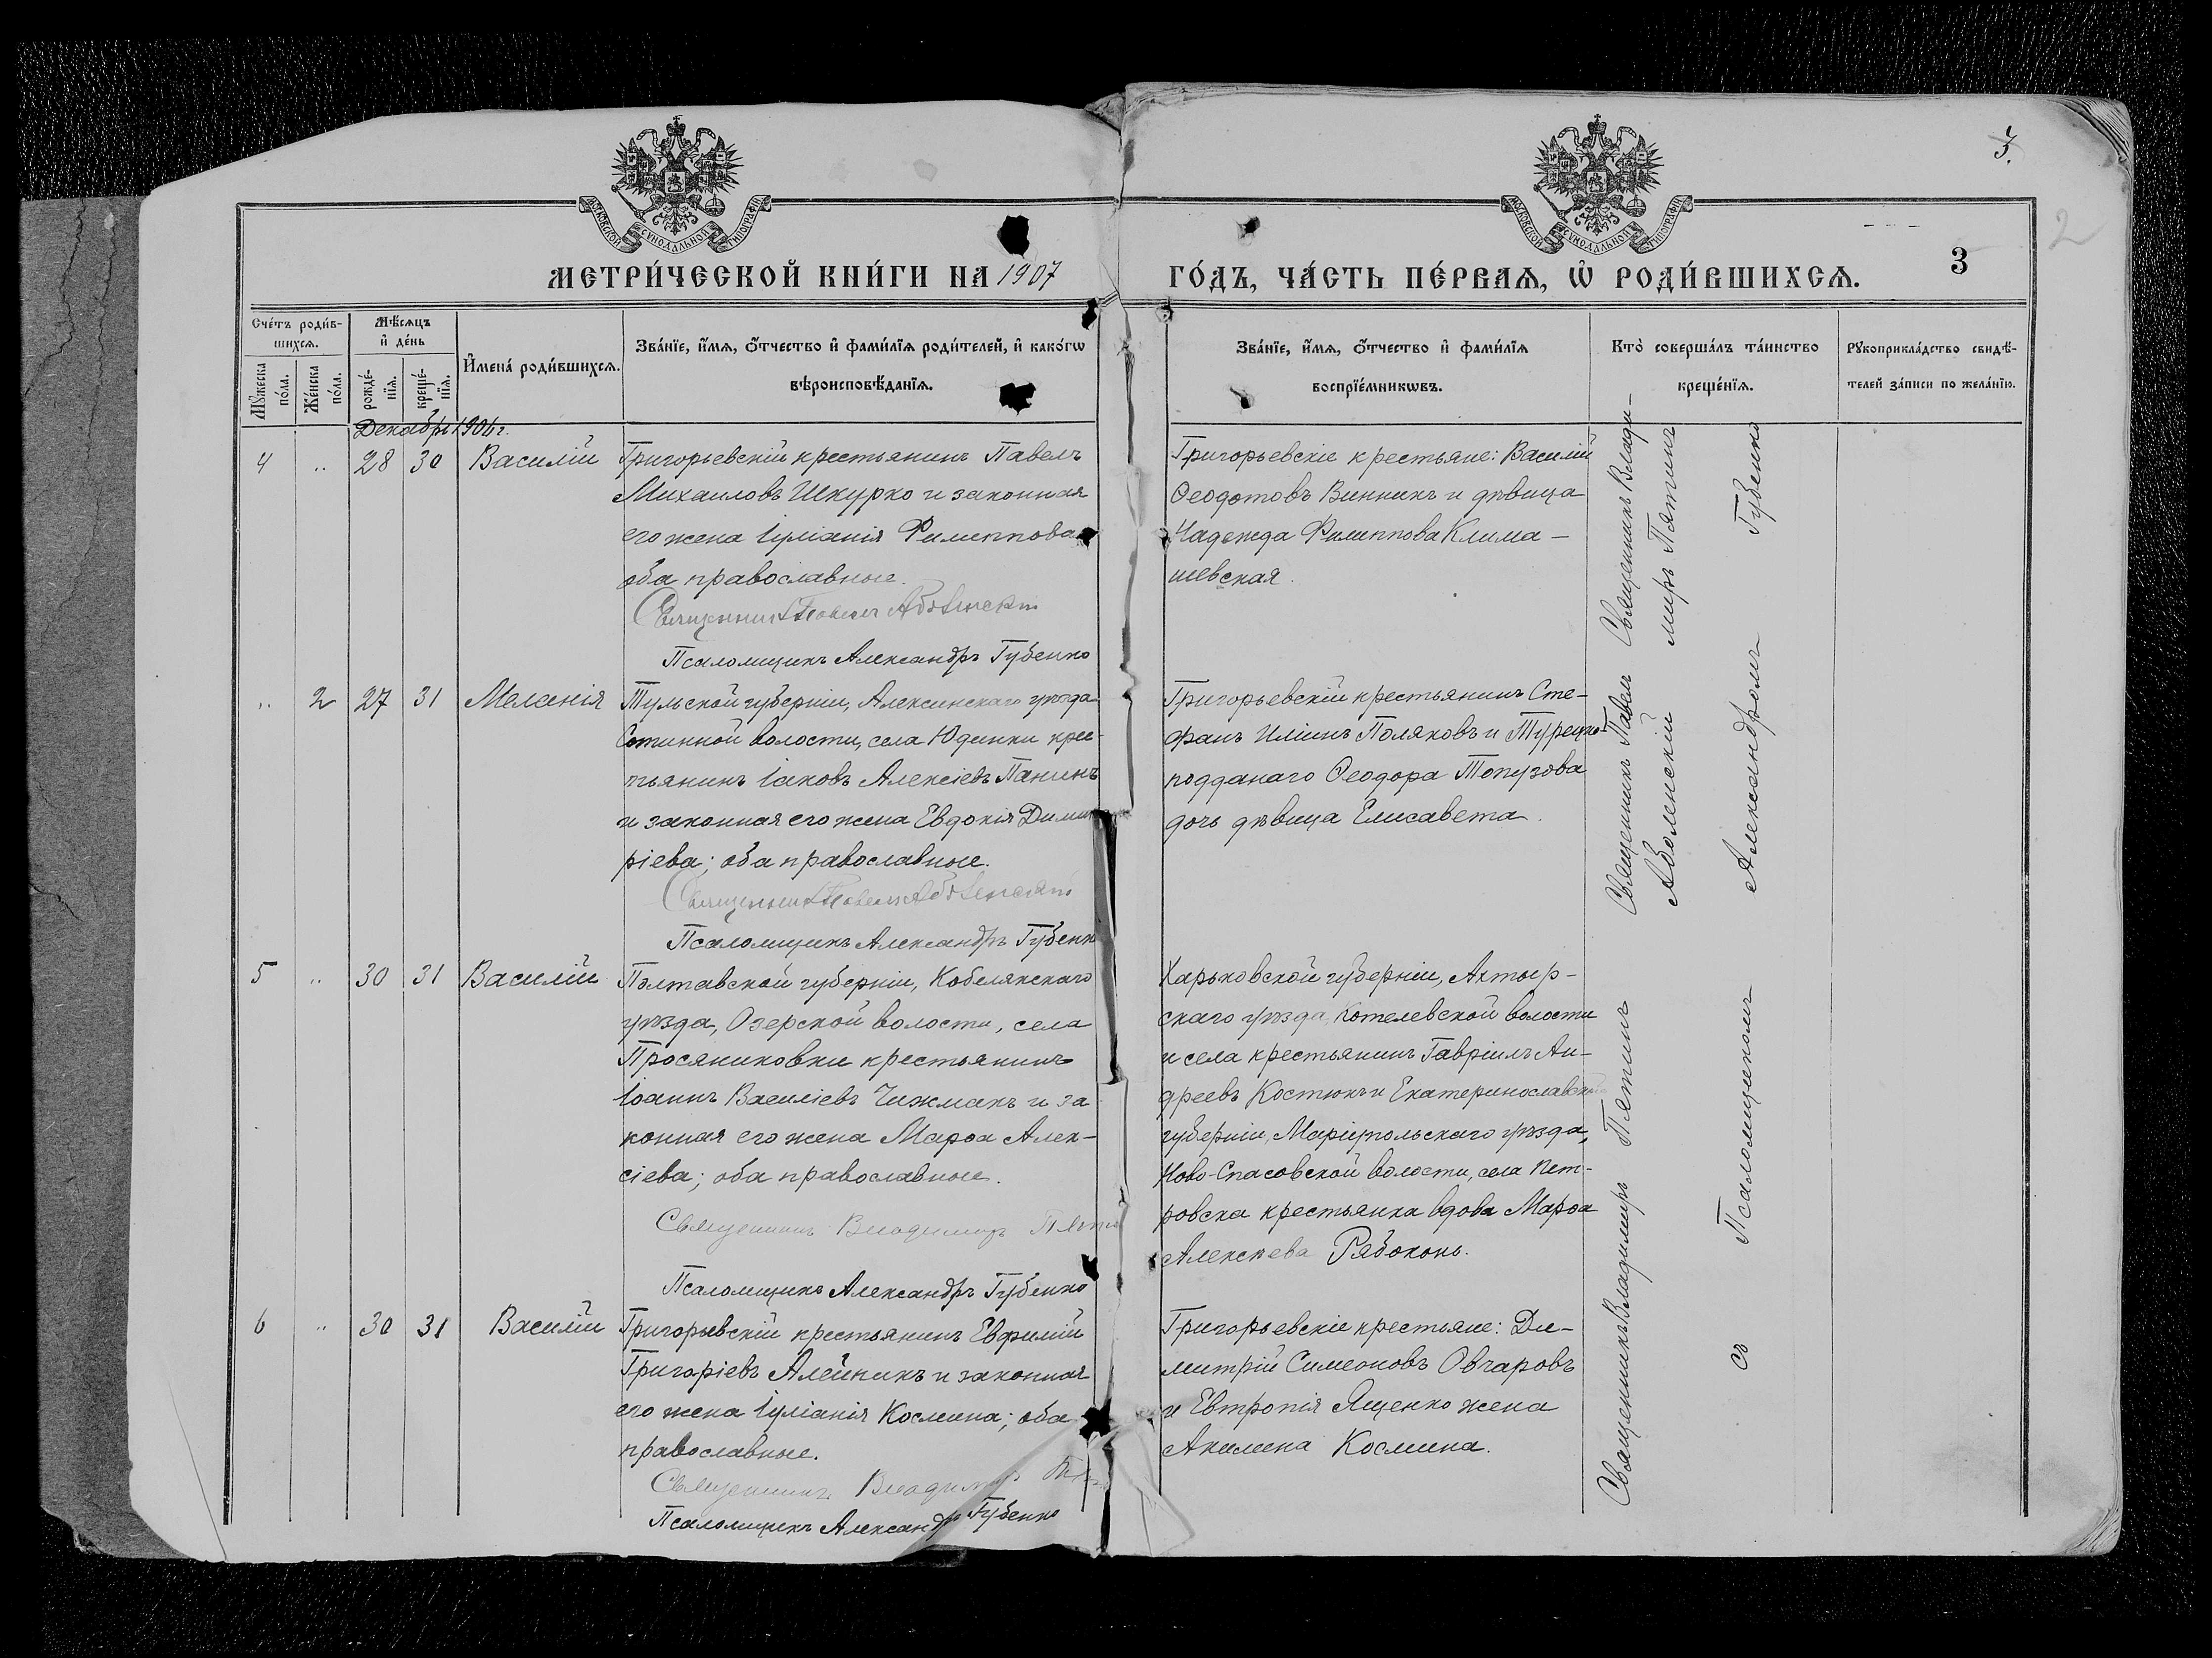 3.
2
МОСКОВСКОЙ СѴНОДАЛЬНОЙ ТИПОГРАФІИ
МОСКОВСКОЙ СѴНОДАЛЬНОЙ ТИПОГРАФІИ
МЕТРИ́ЧЕСКОЙ КНИ́ГИ НА 1907
ГО́ДЪ, ЧА́СТЬ ПЕ́РВАѦ, Ѽ РОДИ́ВШИХСѦ.
3
Сче́тъ роди́в-
шихсѧ.
Мꙋ́жеска
по́ла.
Же́нска
по́ла.
Мѣ́сѧцъ
и҆ де́нь
рожде́-
нїѧ.
креще́-
нїѧ.
И҆мена̀ роди́вшихсѧ.
Зва́нїе, и҆́мѧ, ѻ҆́тчество и҆ фами́лїѧ роди́телей, и҆ како́гѡ
вѣроисповѣ́данїѧ.
Зва́нїе, и҆́мѧ, ѻ҆́тчество и҆ фами́лїѧ
воспрїе́мникѡвъ.
Кто̀ соверша́лъ та́инство
креще́нїѧ.
Рꙋкоприкла́дство свидѣ́-
телей за́писи по жела́нїю.
Декабрь 1906 г.
4 „ 28 30 Василій
Григорьевскій крестьянинъ Павелъ
Михаиловъ Шкурко и законная
его жена Іуліанія Филиппова
оба православные.
Священникъ Павелъ Аболенскій
Псаломщикъ Александръ Губенко
Григорьевскіе крестьяне: Василій
Ѳеодотовъ Винникъ и дѣвица
Надежда Филиппова Клима-
шевская.
Священникъ Влади-
миръ Пятинъ
„ 2 27 31 Меланія
Тульской губерніи, Алексинскаго уѣзда
Сотинной волости, села Юдинки крес-
тьянинъ Іаковъ Алексіевъ Панинъ
и законная его жена Евдокія Димит
ріева; оба православные.
Священникъ Павелъ Аболенскій
Псаломщикъ Александръ Губенко
Григорьевскій крестьянинъ Сте-
фанъ Иліинъ Поляковъ и Турецко-
подданаго Ѳеодора Топузова
дочь дѣвица Елисавета.
Священникъ Павелъ
Аболенскій
5 „ 30 31 Василій
Полтавской губерніи, Кобелякскаго
уѣзда, Озерской волости, села
Просяниковки крестьянинъ
Іоаннъ Василіевъ Чижманъ и за
конная его жена Марѳа Алек-
сіева; оба православные.
Священникъ Владимиръ Пятин
Псаломщикъ Александръ Губенко
Харьковской губерніи, Ахтыр-
скаго уѣзда, Котелевской волости
и села крестьянинъ Гавріилъ Ан-
дреевъ Костюкъ и Екатеринославской
губерніи, Маріупольскаго уѣзда,
Ново-Спасовской волости, села Пет-
ровска крестьянка вдова Марѳа
Алексѣева Рябоконь.
6 „ 30 31 Василій
Григорьевскій крестьянинъ Евфимій
Григоріевъ Алейникъ и законная
его жена Іуліанія Космина; оба
православные.
Священникъ Владимиръ
Псаломщикъ Александръ Губенко
Григорьевскіе крестьяне: Ди-
митрій Симеоновъ Овчаровъ
и Евтропія Ященко жена
Акилина Космина.
Священникъ Владимиръ Пятинъ
съ Псаломщикомъ Александромъ Губенко